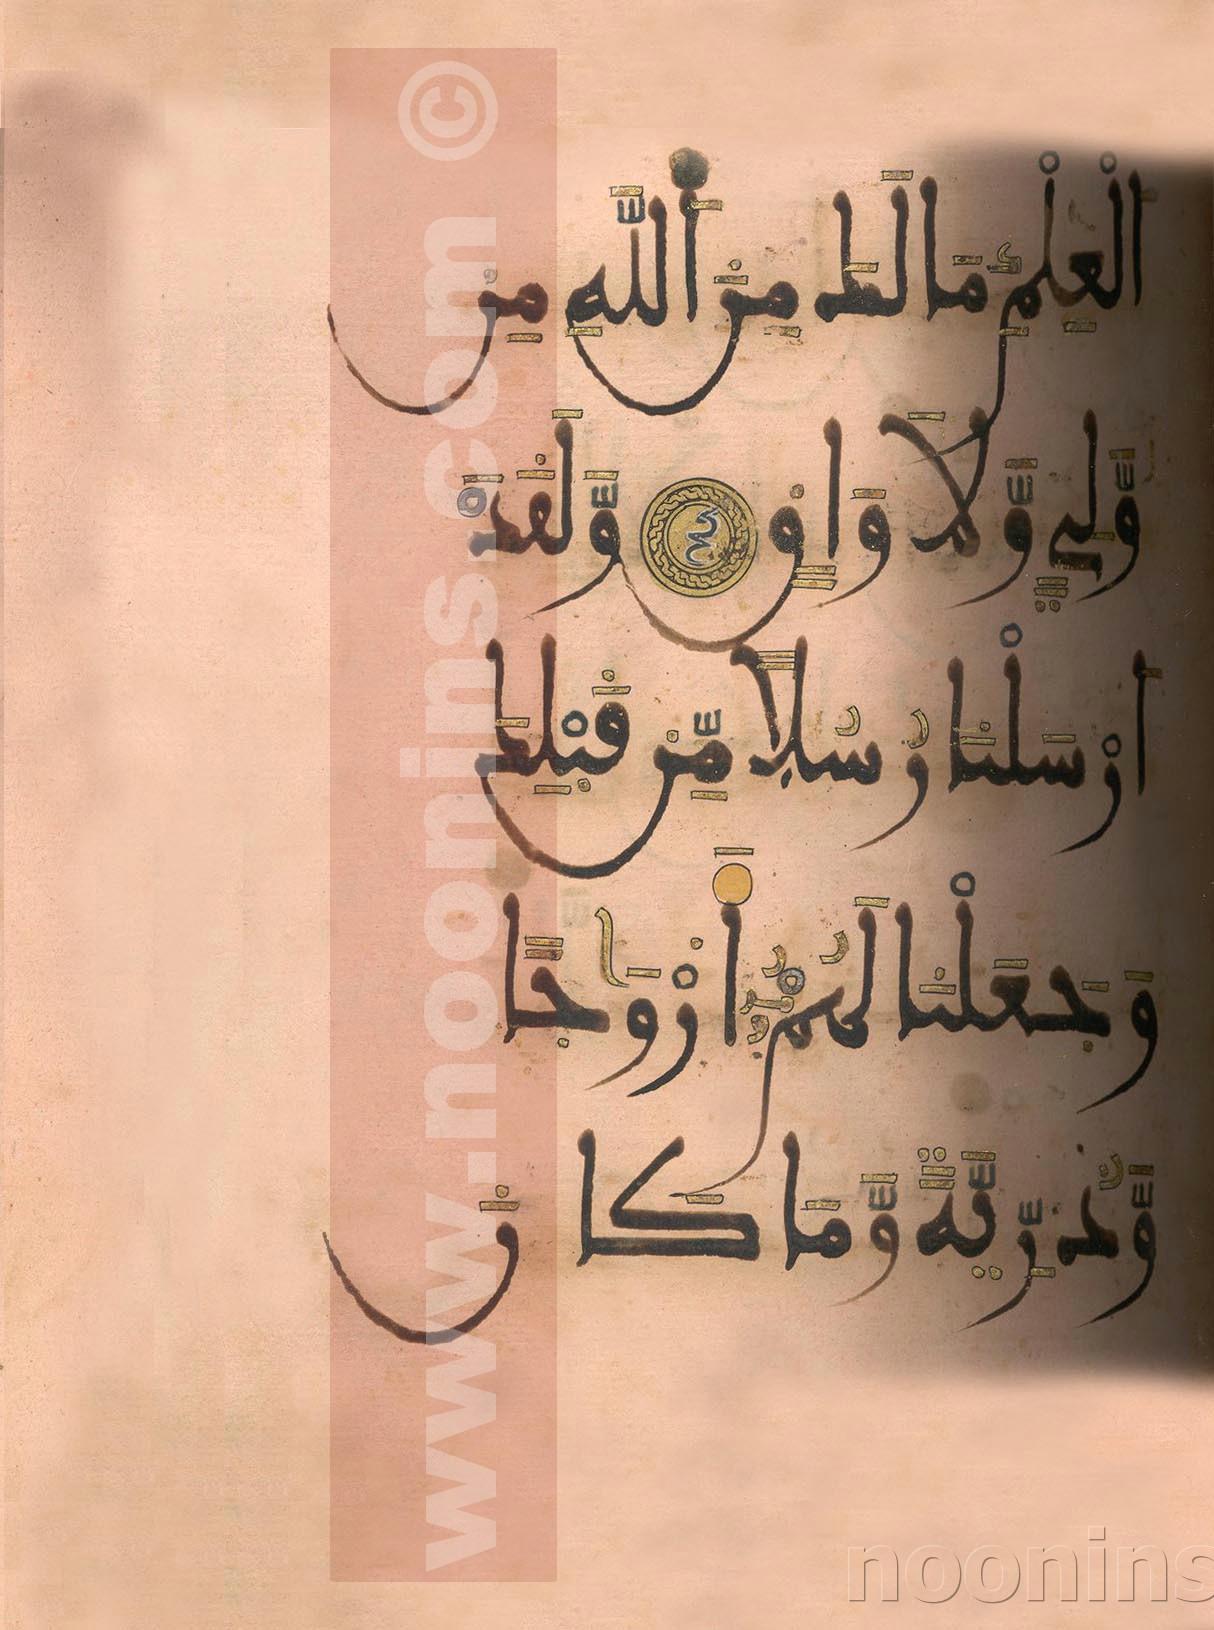 اَ۬لْعِلْمِ مَا لَكَ مِنَ اَ۬للَّهِ مِنْ
وَّلِيّٖ وَّلَا وَاقٖ وَّلَقَدَ
اَرْسَلْنَا رُسُلاً مِّن قَبْلِكَ
وَجَعَلْنَا لَهُمُۥٓ أَزْوَٰجاً
وَّذُرِّيَّةً وَّمَا كَانَ
www.noonins.com ©
noonins